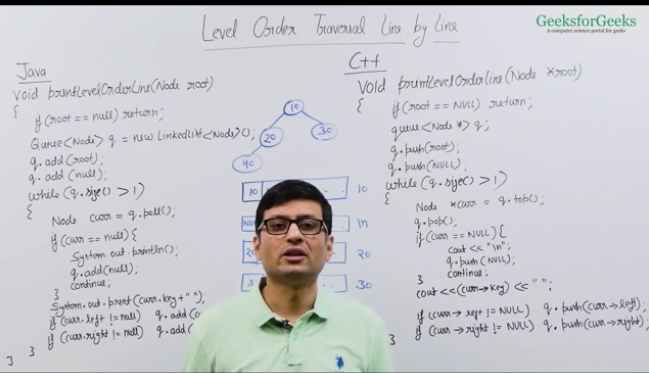 Level Order Traversal Line by Line
GeeksforGeeks
A computer science portal for geeks
Java
void printLevelOrderLine(Node root)
{
if(root == null) return;
Queue<Node> q = new LinkedList<Node>();
q.add(root);
q.add(null);
while (q.size() > 1)
{
Node curr = q.poll();
if (curr == null) {
System.out.println();
q.add(null);
continue;
}
System.out.print(curr.key + " ");
if (curr.left != null) q.add(
if (curr.right != null) q.add(
}
}
10
20
30
40
10
10
\n
20
30
C++
void printLevelOrderLine(Node *root)
{
if (root == NULL) return;
queue<Node *> q;
q.push(root);
q.push(NULL);
while (q.size() > 1)
{
Node *curr = q.top();
q.pop();
if (curr == NULL) {
cout << "\n";
q.push(NULL);
continue;
}
cout << (curr→key) << " ";
if (curr → left != NULL) q.push(curr→left);
if (curr → right != NULL) q.push(curr→right);
}